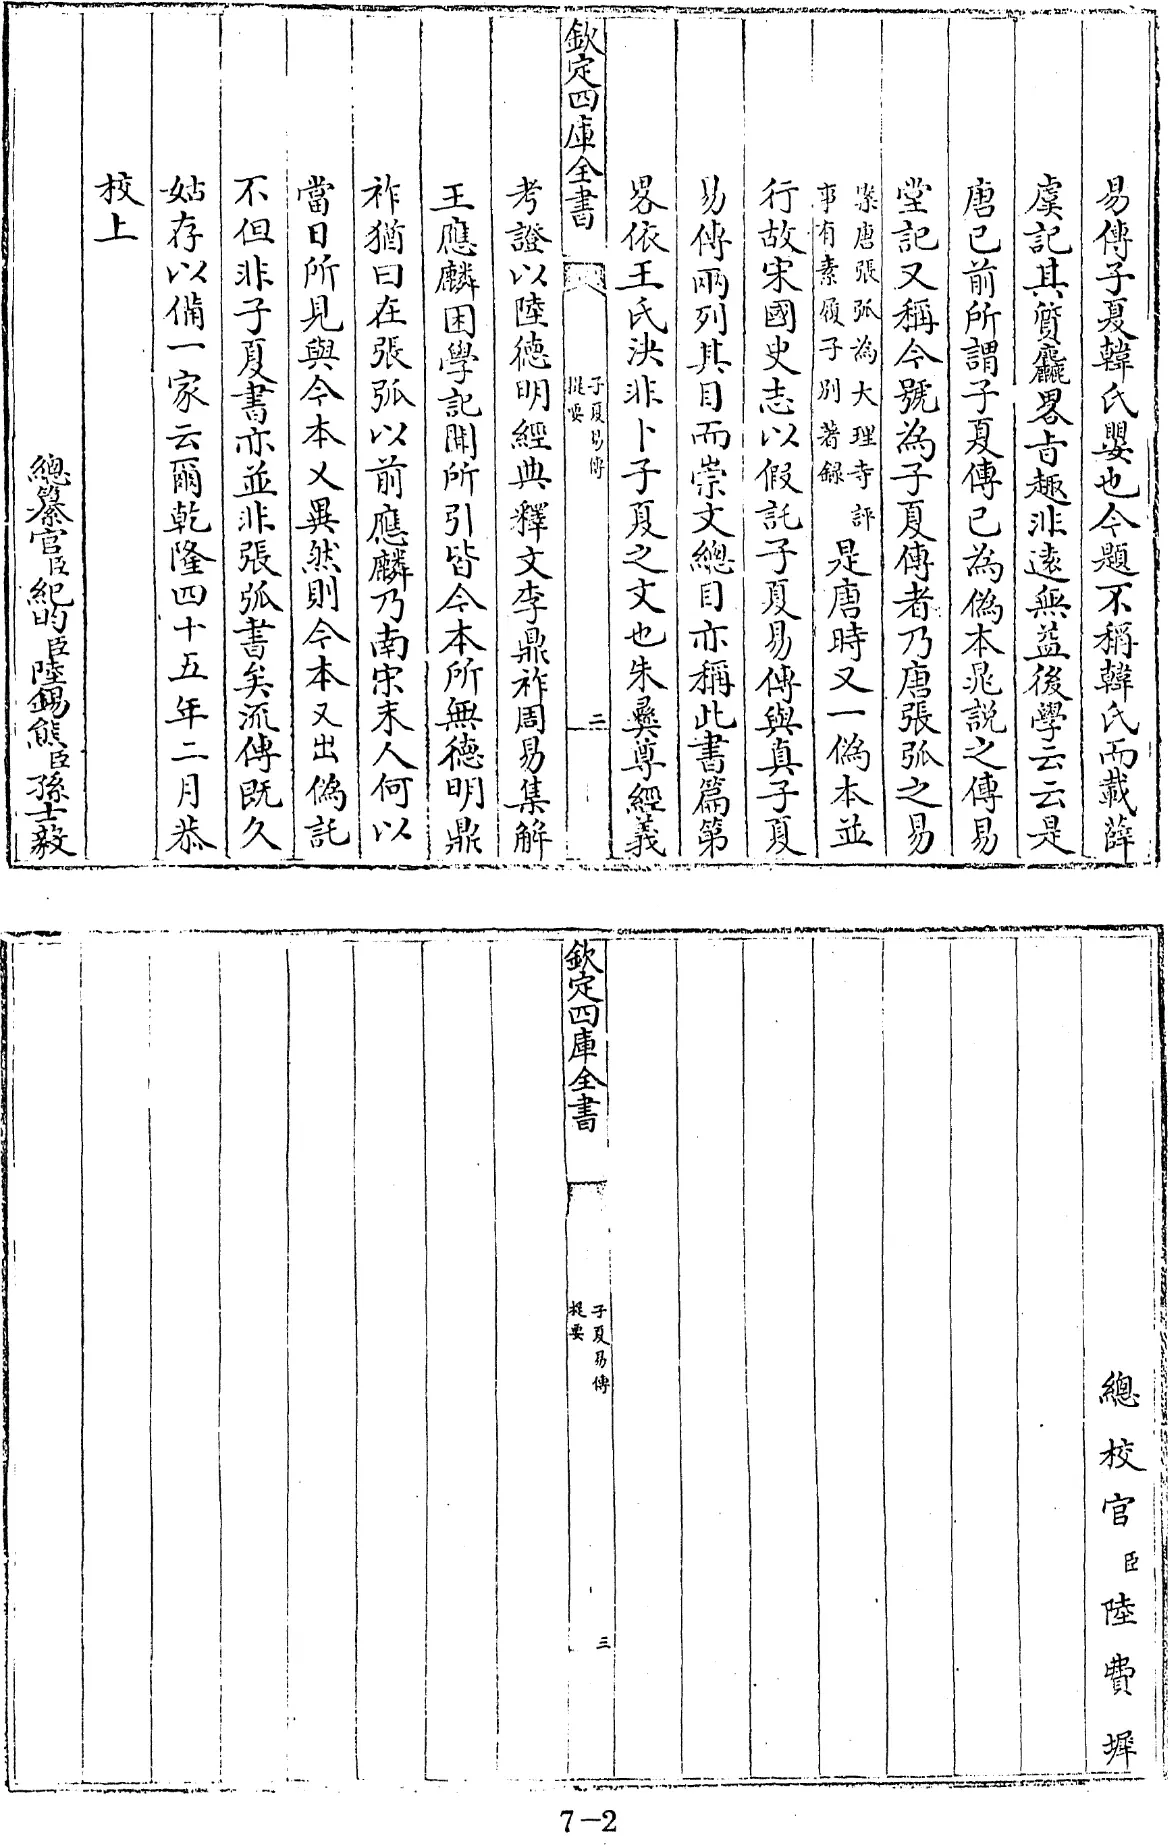 易傳子夏韓氏嬰也今題不稱韓氏而載薛
虞記其質麤畧旨趣非遠無益後學云云是
唐已前所謂子夏傳已為偽本晁説之傳易
堂記又稱今號為子夏傳者乃唐張弧之易
案唐張弧為大理寺評
事有素履子別著録
是唐時又一偽本並
行故宋國史志以假託子夏易傳與真子夏
易傳兩列其目而崇文總目亦稱此書篇第
畧依王氏決非卜子夏之文也朱彝尊經義
欽定四庫全書
子夏易傳
提要
二
考證以陸德明經典釋文李鼎祚周易集解
王應麟困學記聞所引皆今本所無德明鼎
祚猶曰在張弧以前應麟乃南宋末人何以
當日所見與今本又異然則今本又出偽託
不但非子夏書亦並非張弧書矣流傳既久
姑存以備一家云爾乾隆四十五年二月恭
校上
總纂官臣紀昀臣陸錫熊臣孫士毅
總校官臣陸費墀
欽定四庫全書
子夏易傳
提要
三
7-2